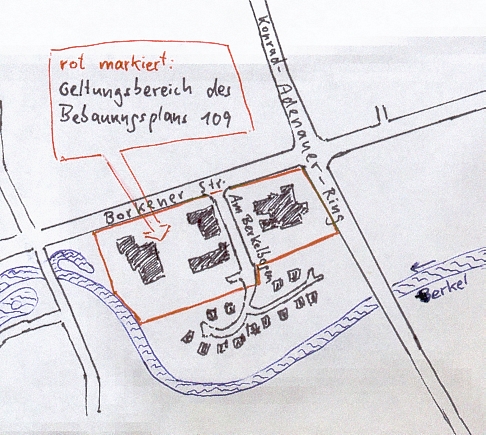 rot markiert:
Geltungsbereich des
Bebauungsplans 109
Konrad-Adenauer-Ring
Borkener Str.
Am Berkelbogen
Berkel